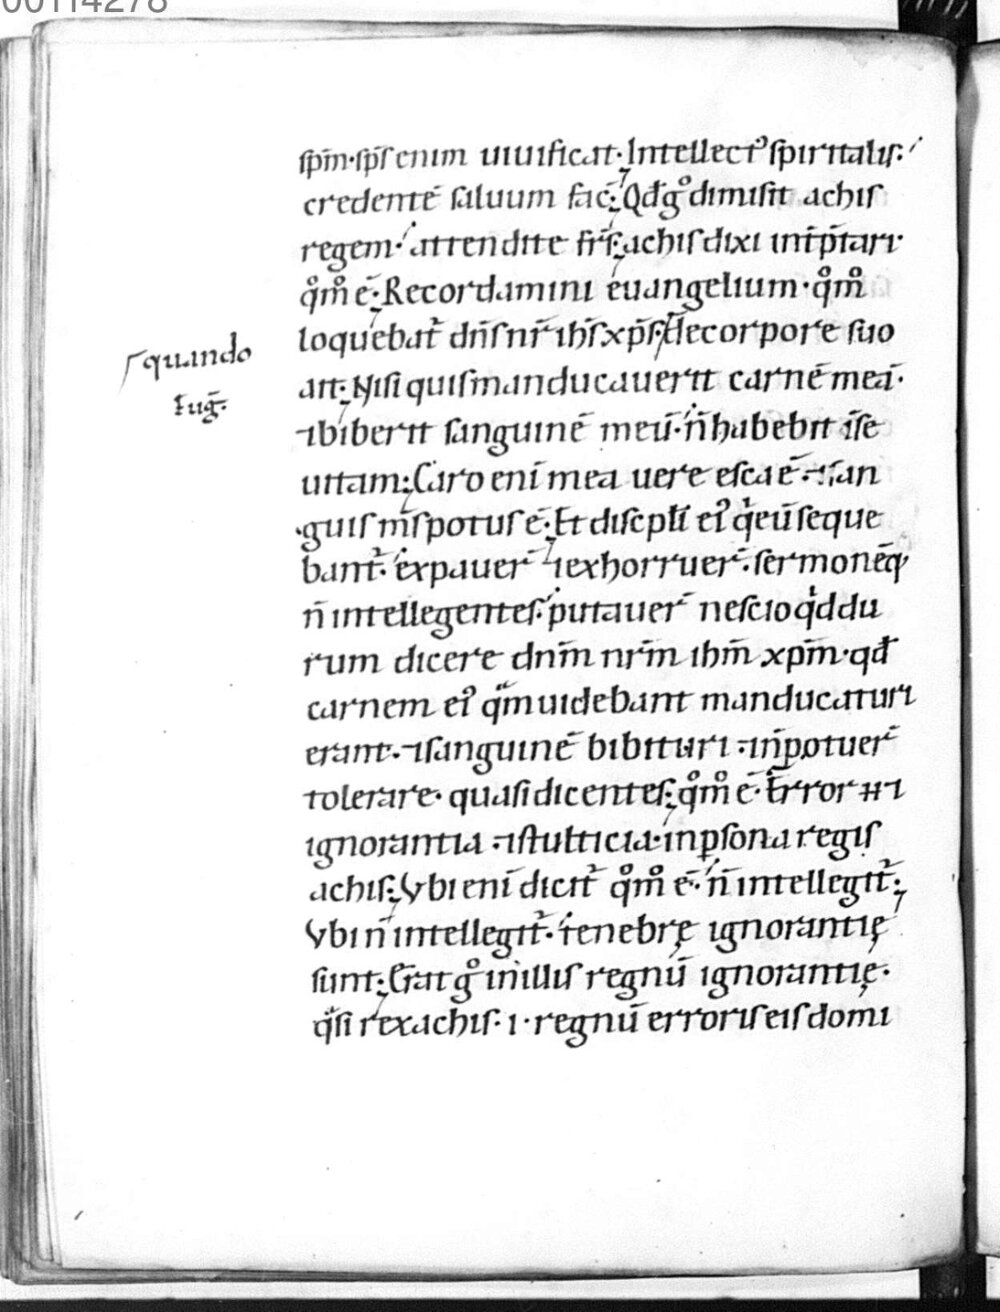 00114278
sp̄m·sp̄s enim uiuificat·Intellect᾿ spiritalis·
credentē saluum fac̄;Qđ gͦ dimisit achis
regem·attendite fr̄s;achis dixi int̄p̄tari·
qͦm̊ ē;Recordamini euangelium·qͦm̊
loquebat᷑ dn̄s nr̄ ih̄s xp̄s;de corpore suo
ait;Nisi quis manducauerit carnē meā·
⁊ biberit sanguinē meū·n̄ habebit ī se
uitam;Caro enī mea uere esca ē·⁊ san
guis m̄s potus ē;Et discpłi ei᾿ qͥ eū seque
bant᷑·expauer̄ ⁊ exhorruer̄·sermonēq;
n̄ intellegentes·putauer̄ nescio qͥd du
rum dicere dn̄m nr̄m ih̄m xp̄m·qđ
carnem ei᾿ qͣm uidebant manducaturi
erant·⁊ sanguinē bibituri·⁊ n̄ potuer̄
tolerare·quasi dicentes;qͦm̊ ē·Error
ignorantia·⁊ stulticia·in ꝑsona regis
achis;Vbi enī dicit᷑ qͦm̊ ē·n̄ intellegit᷑;
Vbi n̄ intellegit᷑·tenebrę ignorantię
sunt;Erat gͦ in illis regnū ignorantię·
qͣsi rex achis·i·regnū erroris eis domi
quando
Eug̅·